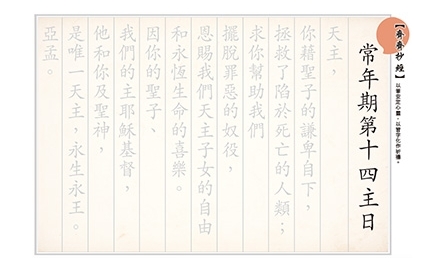 【齊齊抄經】
以筆安定心靈，以寫字化作祈禱。
常年期第十四主日
天主，
你藉聖子的謙卑自下，
拯救了陷於死亡的人類；
求你幫助我們
擺脫罪惡的奴役，
恩賜我們天主子女的自由
和永恆生命的喜樂。
因你的聖子、
我們的主耶穌基督，
他和你及聖神，
是唯一天主，永生永王。
亞孟。